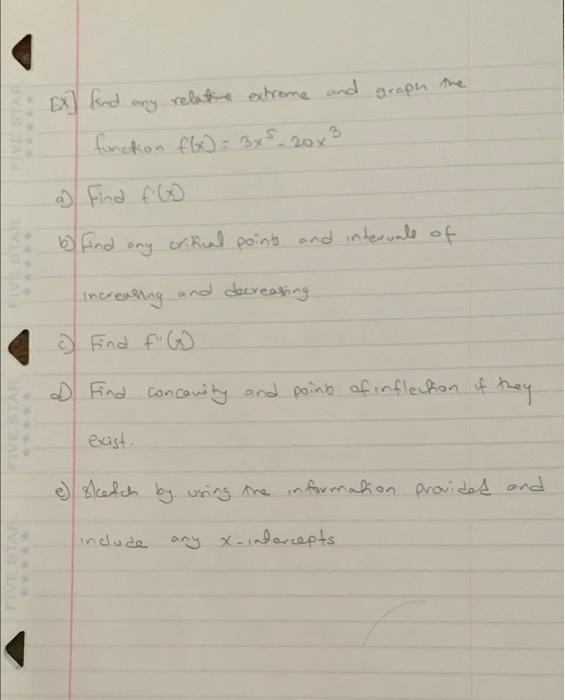 EX] find any relative extreme and graph the
function f(x) = 3x⁵ - 20x³
a) Find f'(x)
b) find any critical points and intervals of
increasing and decreasing
c) Find f"(x)
d) Find concavity and points of inflection if they
exist.
e) sketch by using the information provided and
include any x-intercepts
FIVE STAR
FIVE STAR
FIVE STAR
FIVE STAR